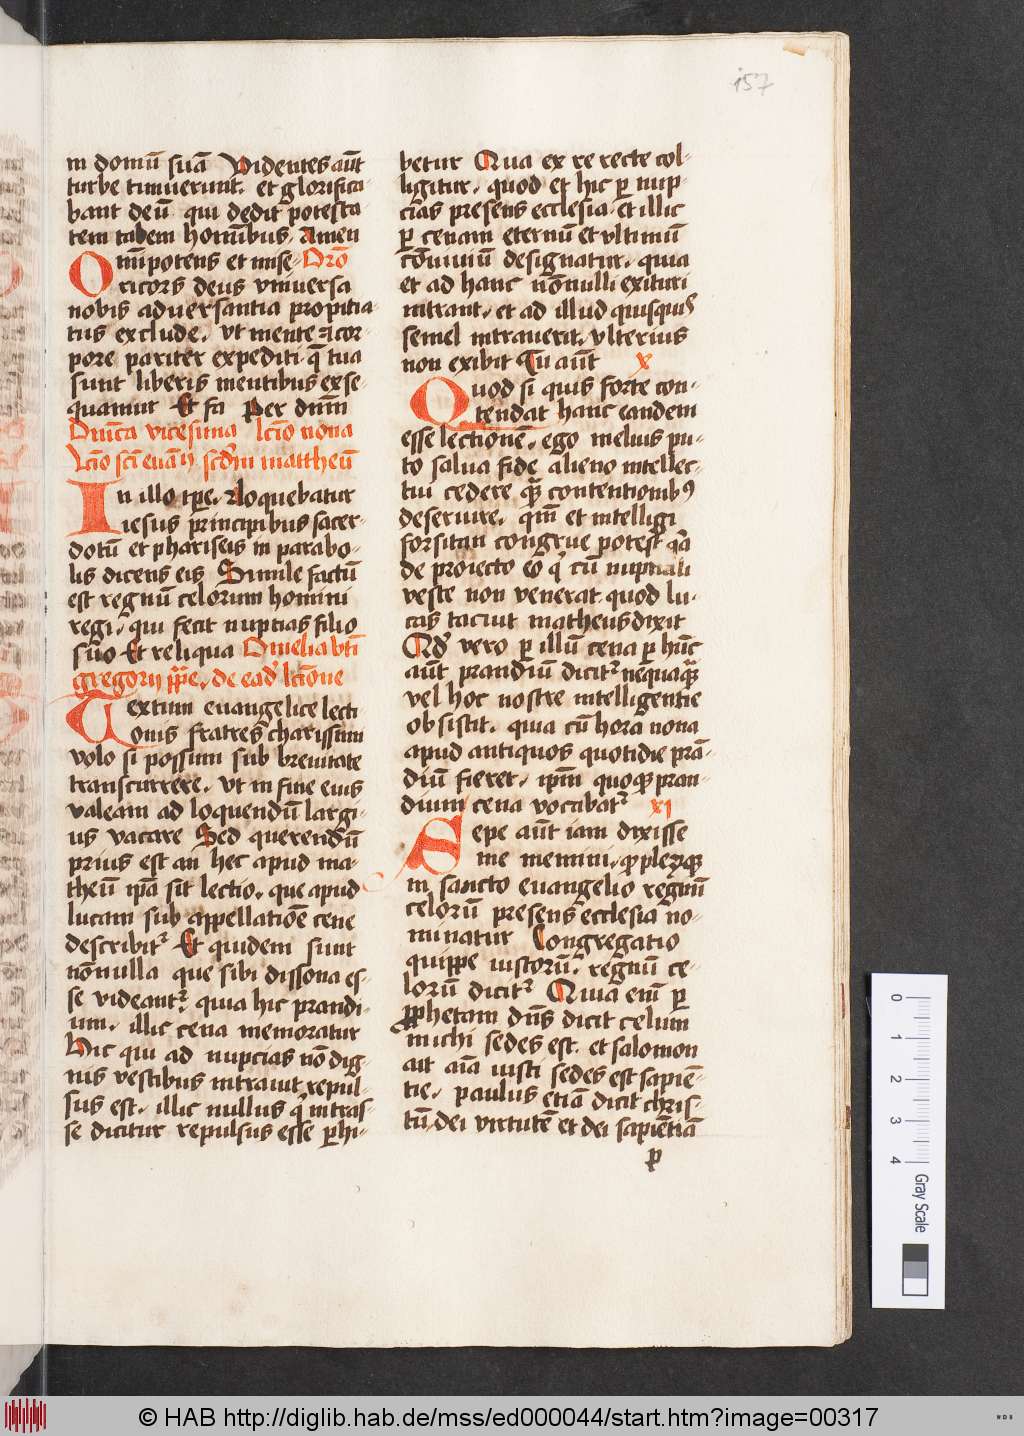 157
in domū suā Videntes aūt
turbe timuerunt. et glorifica-
bant deū qui dedit potesta-
tem talem hominibus. Amen
Omīpotens et mise- Orō
ricors deus vniuersa
nobis aduersantia propitia-
tus exclude. vt mente ⁊ cor-
pore pariter expediti q̄ tua
sunt liberis mentibus exse-
quamur Et fa Per dnm̄
Dnīca vicesima lcīo nona
Lcīo scī euāⁿ scdm̄ mattheū
In illo tpe. ⁊ loquebatur
iesus principibus sacer-
dotū et phariseis in parabo-
lis dicens eis Simile factū
est regnū celorum homini
regi. qui fecit nuptias filio
suo Et reliqua Omelia btī
gregorij ppe. de eadē lcīone
Textum euangelice lecti
onis fratres charissimi
volo si possum sub breuitate
transcurrere. vt in fine eius
valeam ad loquendū largi-
us vacare Sed querendū
prius est an hec apud ma-
theū ipā sit lectio. que apud
lucam sub appellatiōe cene
describit᷑ Et quidem sunt
nōnulla que sibi dissona es-
se videant᷑. quia hic prandi-
um. illic cena memoratur
Hic qui ad nupcias nō dig-
nis vestibus intrauit repul-
sus est. illic nullus q̄ intras-
se dicitur repulsus esse ꝑhi-
betur Qua ex re recte col-
ligitur. quod et hic ꝑ nup-
cias presens ecclesia. et illic
ꝑ cenam eternū et vltimū
cōuiuiū designatur. quia
et ad hanc nōnulli exituri
intrant. et ad illud quisquis
semel intrauerit. vlterius
non exibit Tu aūt x
Quod si quis forte con-
tendat hanc eandem
esse lectionē. ego melius pu-
to salua fide alieno intellec-
tui cedere qȝ contentionibꝰ
deseruire. qm̄ et intelligi
forsitan congrue potest qa
de proiecto eo q̄ cū nuptiali
veste non venerat quod lu-
cas tacuit matheus dixit
Qd̄ vero ꝑ illū cena ꝑ hūc
aūt prandiū dicit᷑ neqȝaqȝ
vel hoc nostre intelligentie
obsistit. quia cū hora nona
apud antiquos quotidie prā-
diū fieret. ipm̄ quoqȝ pran-
dium cena vocabat᷑ xi
Sepe aūt iam dixisse
me memini. qꝫ plerūqȝ
in sancto euangelio regnū
celorū presens ecclesia no-
minatur Congregatio
quippe iustorū. regnū ce-
lorū dicit᷑ Quia enī ꝑ
prophetam dn̄s dicit celum
michi sedes est. et salomon
ait aīa iusti sedes est sapiē-
tie. paulus etiā dicit chris-
tū. dei virtutē et dei sapiētiā
p
0 1 2 3 4
Gray Scale
© HAB http://diglib.hab.de/mss/ed000044/start.htm?image=00317